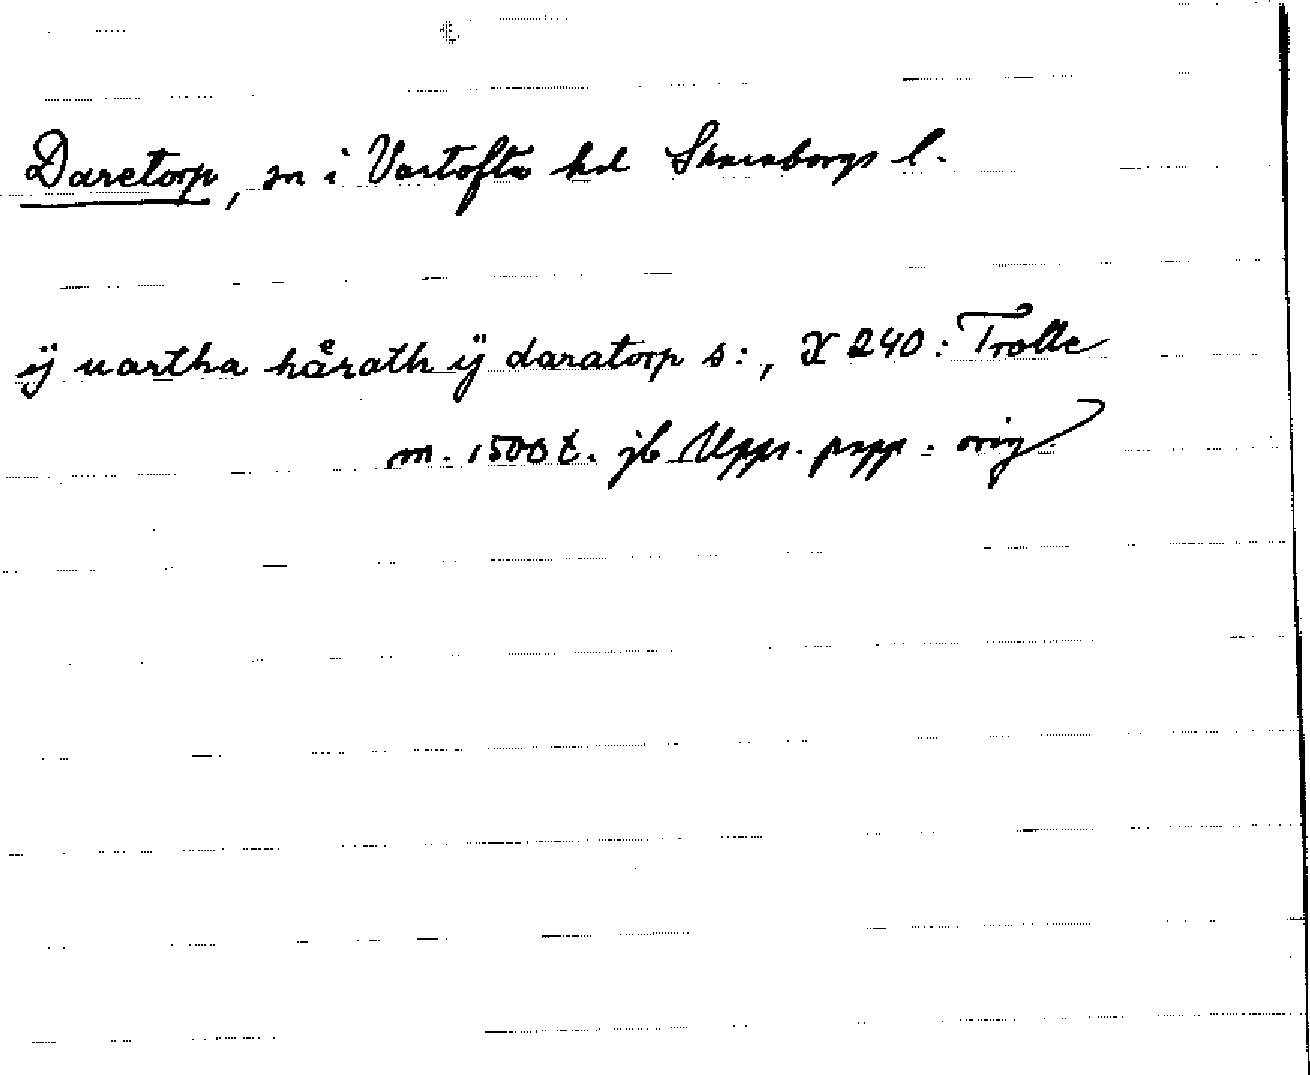 Daretorp, sn i Vartofta hd Skaraborgs l.
ÿ uartha håͤrath ÿ daratorp s:, X 240: Trolle
m. 1500 t. jb Upps. papp. orig